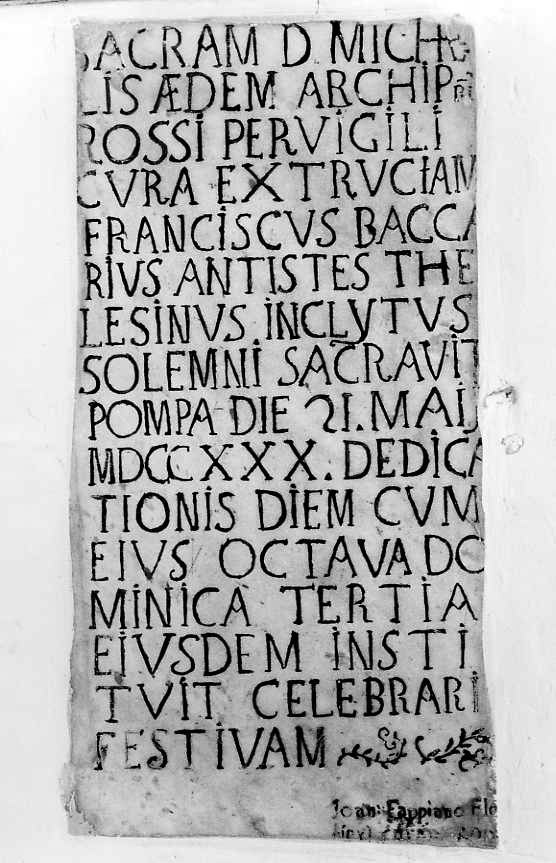 SACRAM D. MICHE
LIS ÆDEM ARCHIPRI
ROSSI PERVIGILI
CVRA EXTRVCIAM
FRANCISCVS BACCA
RIVS ANTISTES THE
LESINVS INCLYTVS
SOLEMNI SACRAVIT
POMPA DIE 21. MAIJ
MDCCXXX. DEDICA
TIONIS DIEM CVM
EIVS OCTAVA DO
MINICA TERTIA
EIVSDEM INSTI
TVIT CELEBRARI
FESTIVAM
Joan: Fappiano